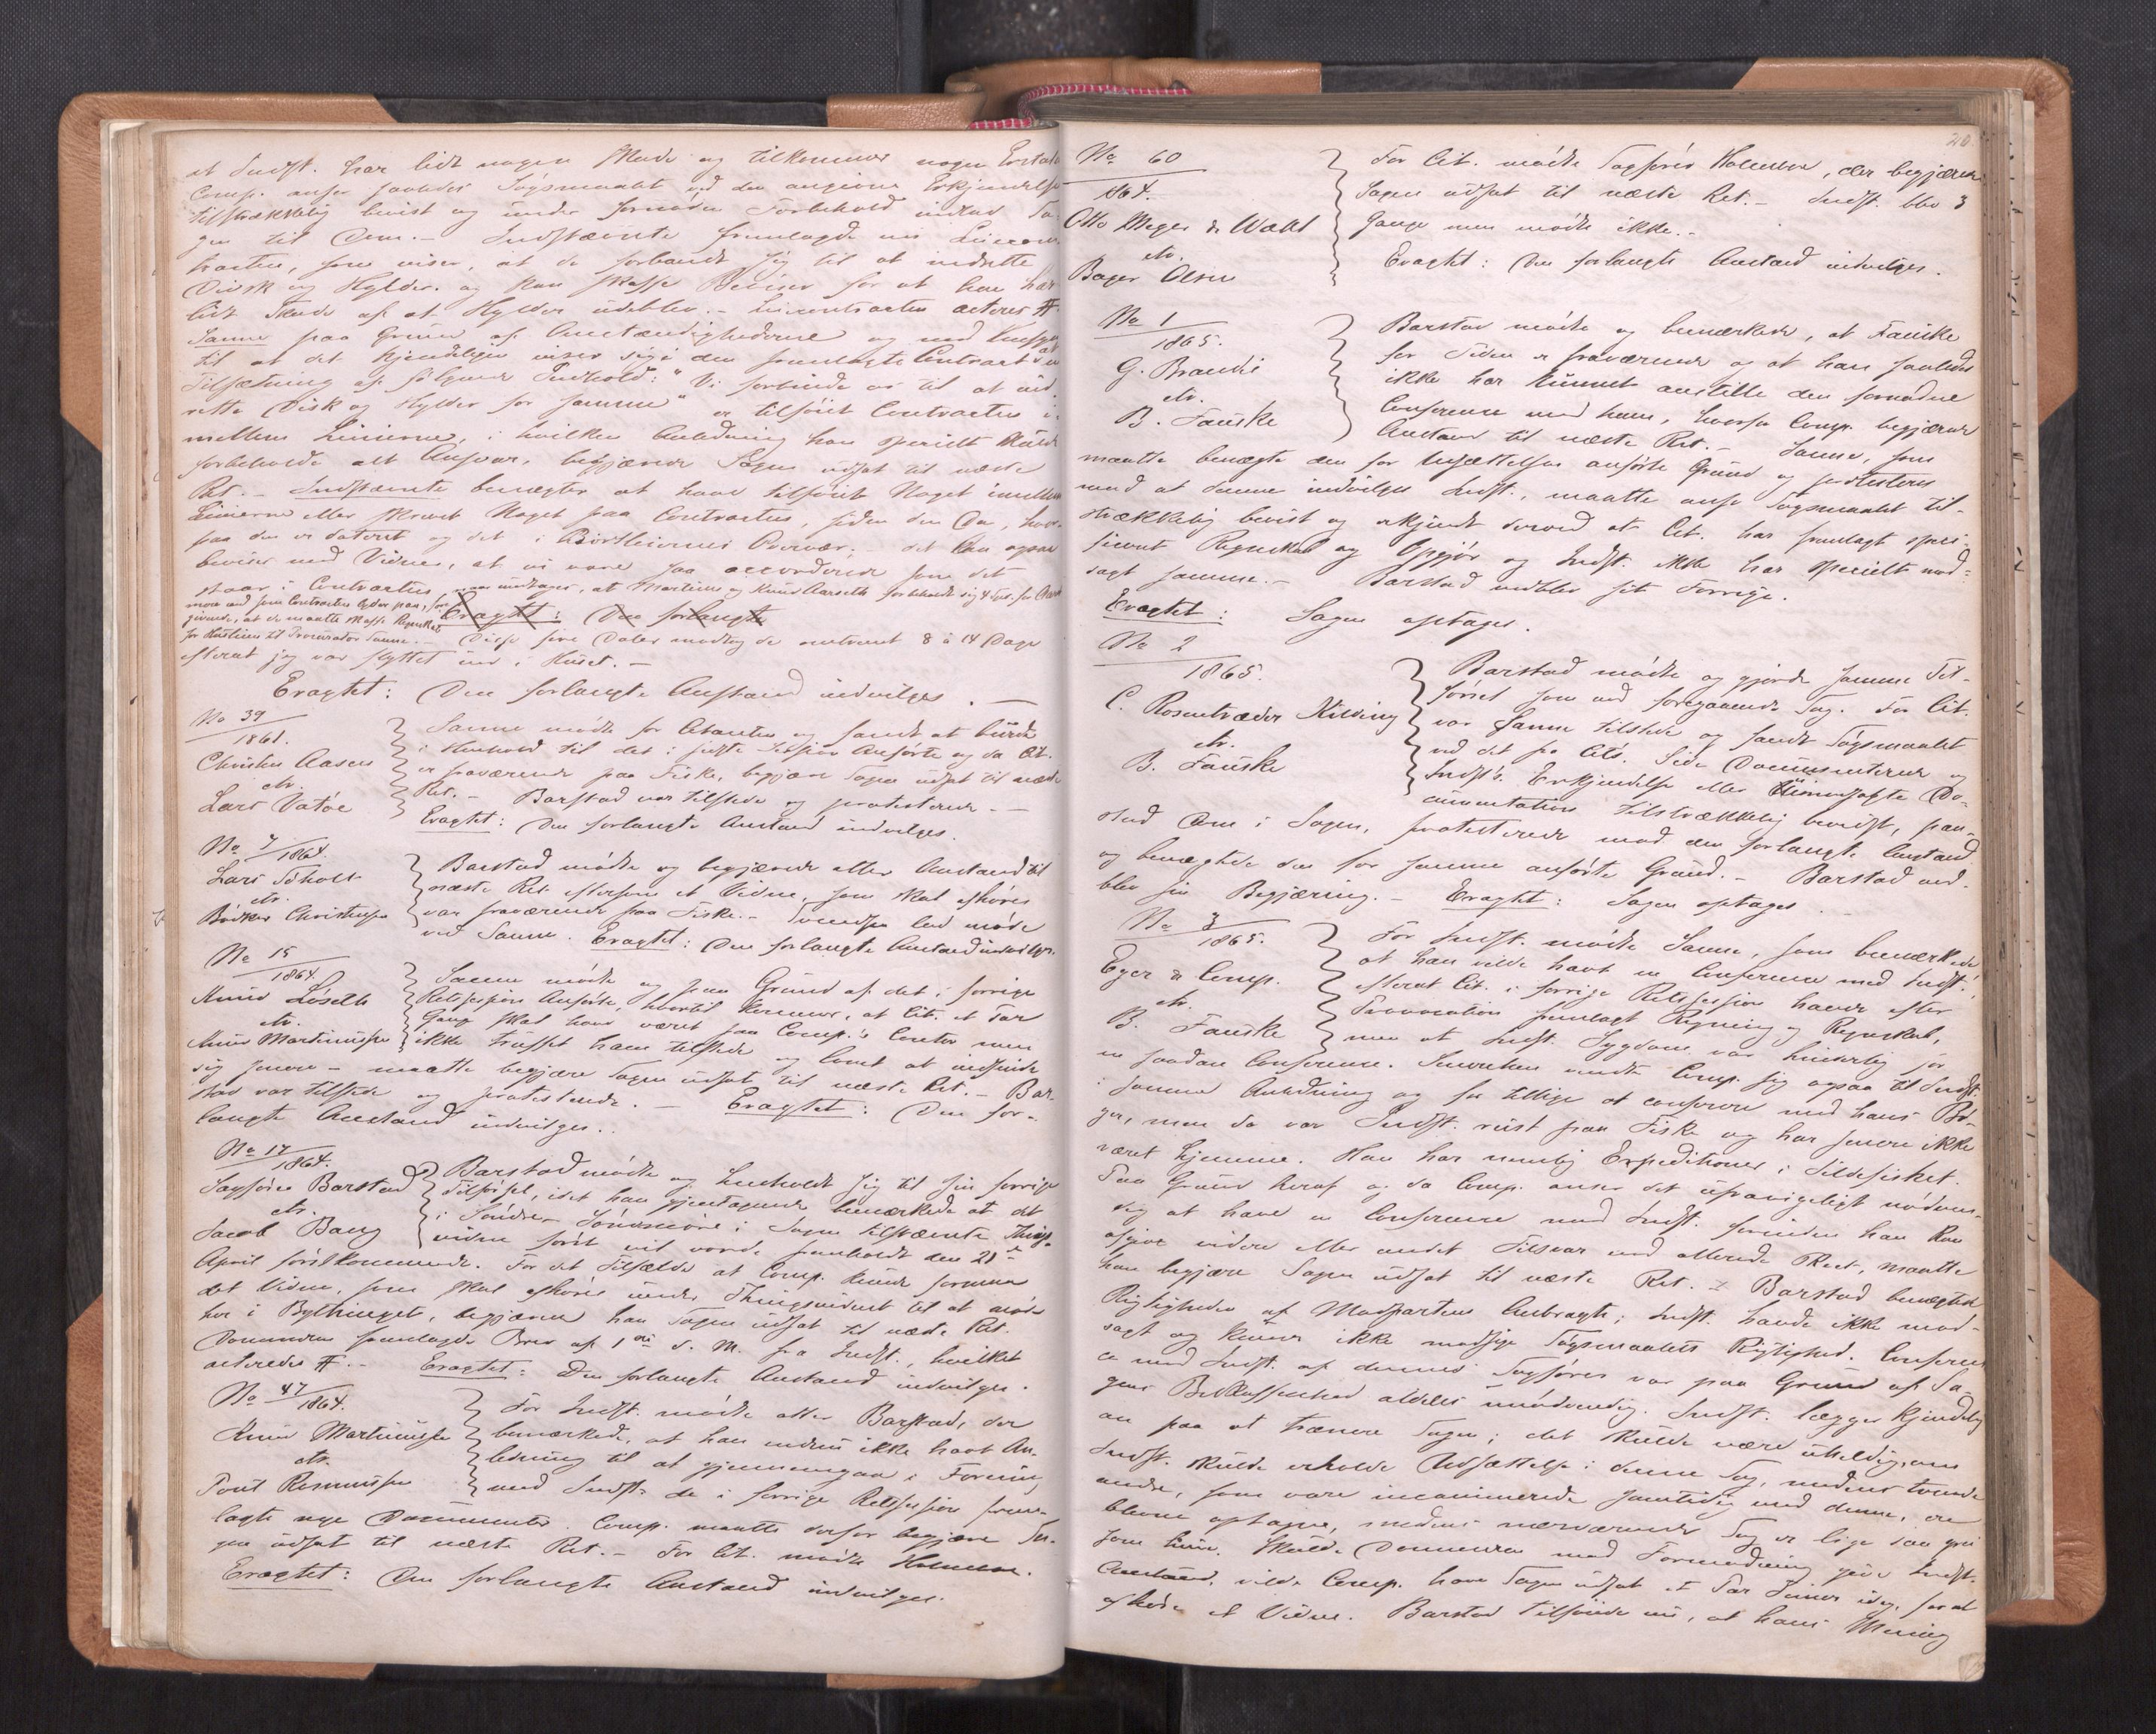 at Indst. har lidt nogen Skade og tilkommer nogen Erstatn
Comp. anser saaledes Søgsmaalet ved den angivne Erkjendelse
tilstrækkelig bevist og under fornøden Forbehold indlod Sa-
gen til Dom. – Indstævnte fremlagde nu Leiecon-
tracten, som viser, at de forbandt sig til at indrette
Disk og Hylder og kan skaffe Beviser for at have har
lidt Skade af at Hylder udeblev. – Leiecontracten acteres #.
Sanne paa Grund af Omstændighederne og med Hensyn
til at det kjendeligen viser sig i den fremlagte Contract at en
Tilsætning af følgende Indhold: "Vi forbinde os til at ind-
rette Disk og Hylder for samme" er tilføiet Contracten i-
mellem Linierne, i hvilken Anledning han specielt skulde
forbeholde alt Ansvar, begjærede Sagen udsat til næste
Ret. – Indstævnte benægter at have tilføiet Noget imellem
Linierne eller skrevet Noget paa Contracten, siden den Dag, hvor-
paa den er dateret og det i Overvær; det kan ogsaa
bevises med Vidner, at vi vare saa accorderede som det
staar i Contracten undtagen, at Martinus og Knud Aarseth forbeholdt sig 4 Spd. for Aaret
mere end som Contracten lyder paa, fore-
givende, at de maatte skaffe Regnskab
for Huslien til Procurator Sanne. – Disse fire Daler modtog de omtrent 8 à 14 Dage
Eragtet: Den forlangte
efterat jeg var flyttet ind i Huset. –
Eragtet: Den forlangte Anstand indvilges. –
No 39
1861.
Christen Aasen
ctr.
Lars Vatøe
Sanne mødte for Citanten og fandt at burde
i Henhold til det i sidste Session Anførte og da Cit.
er fraværende paa Fiske, begjære Sagen udsat til næste
Ret. – Barstad var tilstede og protesterede. –
Eragtet: Den forlangte Anstand indvilges.
No 7
1864.
Lars Tøholt
ctr.
Bødker Christensen
Barstad mødte og begjærede atter Anstand til
næste Ret eftersom et Vidne, som skal afhøres
var fraværende paa Fiske. – Svendsen lod møde
ved Sanne. Eragtet: Den forlangte Anstand indvilges.
No 15
1864.
Knud Løseth
ctr.
Knud Martinussen
Sanne mødte og paa Grund af det i forrige
Retssession Anførte, hvortil kommer, at Cit. et Par
Gang skal have været paa Comp.s Contor men
ikke truffet ham tilstede og lovet at indfinde
sig senere – maatte begjære Sagen udsat til næste Ret. – Bar-
stad var tilstede og protesterede. – Eragtet: Den for-
langte Anstand indvilges.
No 17
1864.
Sagfører Barstad
ctr.
Jacob Bang
Barstad mødte og henholdt sig til sin forrige
Tilførsel, idet han gjentagende bemærkede at det
i Søndre Søndmøre i Sagen tilstævnte Things-
vidne først vil vorde fremholdt den 21de
April førstkommende. For det Tilfælde at Comp. kunde formaa
det Vidne, som skal afhøres under Thingsvidnet til at møde
her i Bythinget, begjærer han Sagen udsat til næste Ret.
Dommeren fremlagde Brev af 1ste d. M. fra Indst., hvilket
acteredes #. – Eragtet: Den forlangte Anstand indvilges.
No 47
1864.
Knud Martinussen
ctr.
Povl Rasmussen
For Indst. mødte atter Barstad, der
bemærkede, at han endnu ikke havt An-
ledning til at gjennemgaa i Forening
med Indst. de i forrige Retssession frem-
lagte nye Documenter. Comp. maatte derfor begjære Sa-
gen udsat til næste Ret. – For Cit. mødte Holmsen.
Eragtet: Den forlangte Anstand indvilges.
20
No 60
1864.
Otto Meyer & Wahl
ctr.
Bager Olsen
For Cit. mødte Sagfører Holmsen, der begjærede
Sagen udsat til næste Ret. – Indst. blev 3
Gange men mødte ikke. –
Eragtet: Den forlangte Anstand indvilges.
No 1
1865.
G. Brandi
ctr.
B. Fauske
Barstad mødte og bemærkede, at Fauske
for Tiden er fraværende og at han saaledes
ikke har kunnet anstille den fornødne
Conference med ham, hvorfor Comp. begjærede
Anstand til næste Ret. – Sanne, som
maatte benægte den for Udsættelsen anførte Grund og protesterer
mod at denne indvilges Indst., maatte anse Søgsmaalet til-
strækkelig bevist og erkjendt derved at Cit. har fremlagt speci-
ficeret Regnskab og Opgjør og Indst. ikke har specielt mod-
sagt samme. – Barstad vedblev sit Forrige.
Eragtet: Sagen optages.
No 2
1865.
C. Rosentræder Kilding
ctr.
B. Fauske
Barstad mødte og gjorde samme Til-
førsel som ved foregaaende Sag. For Cit.
var Sanne tilstede og fandt Søgsmaalet
ved det fra Cits. Side Documenterede og
Indsts. Erkjendelse eller Uimodsagte Do-
cumentation tilstrækkelig bevist, paa-
stod Dom i Sagen, protesterede mod den forlangte Anstand
og benægtede den for samme anførte Grund. – Barstad ved-
blev sin Begjæring. – Eragtet: Sagen optages.
No 3
1865.
Eger & Comp.
ctr.
B. Fauske
For Indst. mødte Sanne, som bemærkede
at han vilde havt en Conference med Indst.,
efterat Cit. i forrige Retssession havde efter
Provocation fremlagt Regning og Regnskab,
men at Indst. Sygdom var hinderlig for
en saadan Conference. Imorten vendte Comp. sig ogsaa til Indst.
i samme Anledning og for tillige at conferere med hans Bø-
ger, men da var Indst. reist paa Fiske og har senere ikke
været hjemme. Han har nemlig Expeditioner i Sildefisket.
Paa Grund heraf og da Comp. anser det ufravigeligt nødven-
dig at have en Conference med Indst. forinden han kan
afgive videre eller andet Tilsvar end allerede skeet, maatte
han begjære Sagen udsat til næste Ret. – Barstad benægtede
Rigtigheden af Modpartens Anbragte; Indst. havde ikke mod-
sagt og kunde ikke modsige Søgsmaalets Rigtighed. Conferen-
ce med Indst. af dennes Sagfører var paa Grund af Sa-
gens Beskaffenhed aldeles unødvendig. Indst. lægger kjendelig
an paa at trænere Sagen; det skulde være uheldig, om
Indst. skulde erholde Udsættelse i denne Sag, medens tvende
andre, som vare incaminerede samtidig med denne, ere
blevne optagne, medens nærværende Sag er lige saa
som hine. Skulde Dommeren mod Formodning give Indst.
Anstand, vilde Comp. have Sagen udsat et Par Timer idag, for at
afhøre et Vidne. Barstad tilføiede nu, at hans Mening